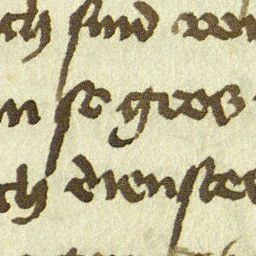 ch sind von
n so gros
ch dienstes